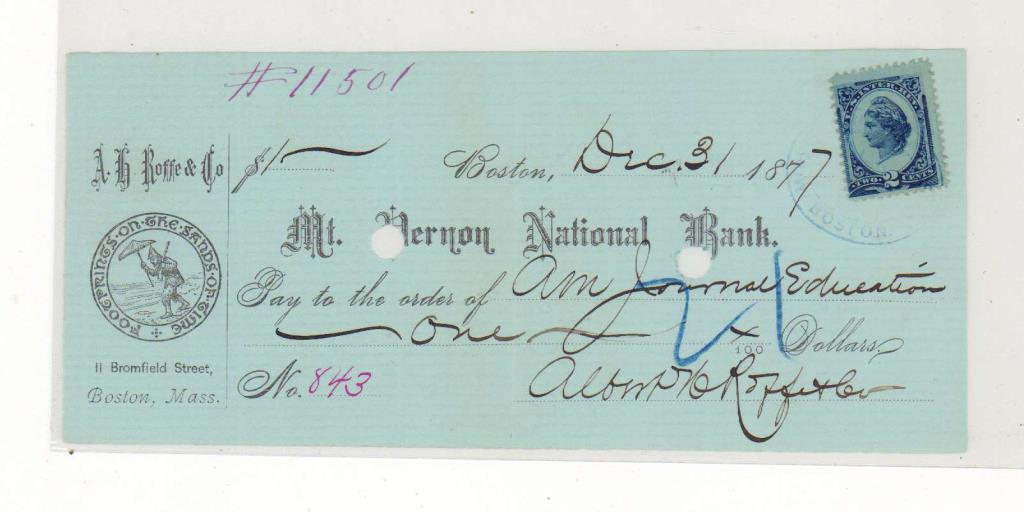 #11501
A. H Roffe & Co
$1
Boston, Dec. 31 1877
U.S. INTER. REV.
TWO 2 CENTS
BOSTON.
Mt. Vernon National Bank.
FOOTPRINTS·ON·THE·SANDS·OF·TIME
Pay to the order of Am Journal Education
One x/100 Dollars
21
11 Bromfield Street,
Boston, Mass.
No. 843
Albert H Roffe & Co